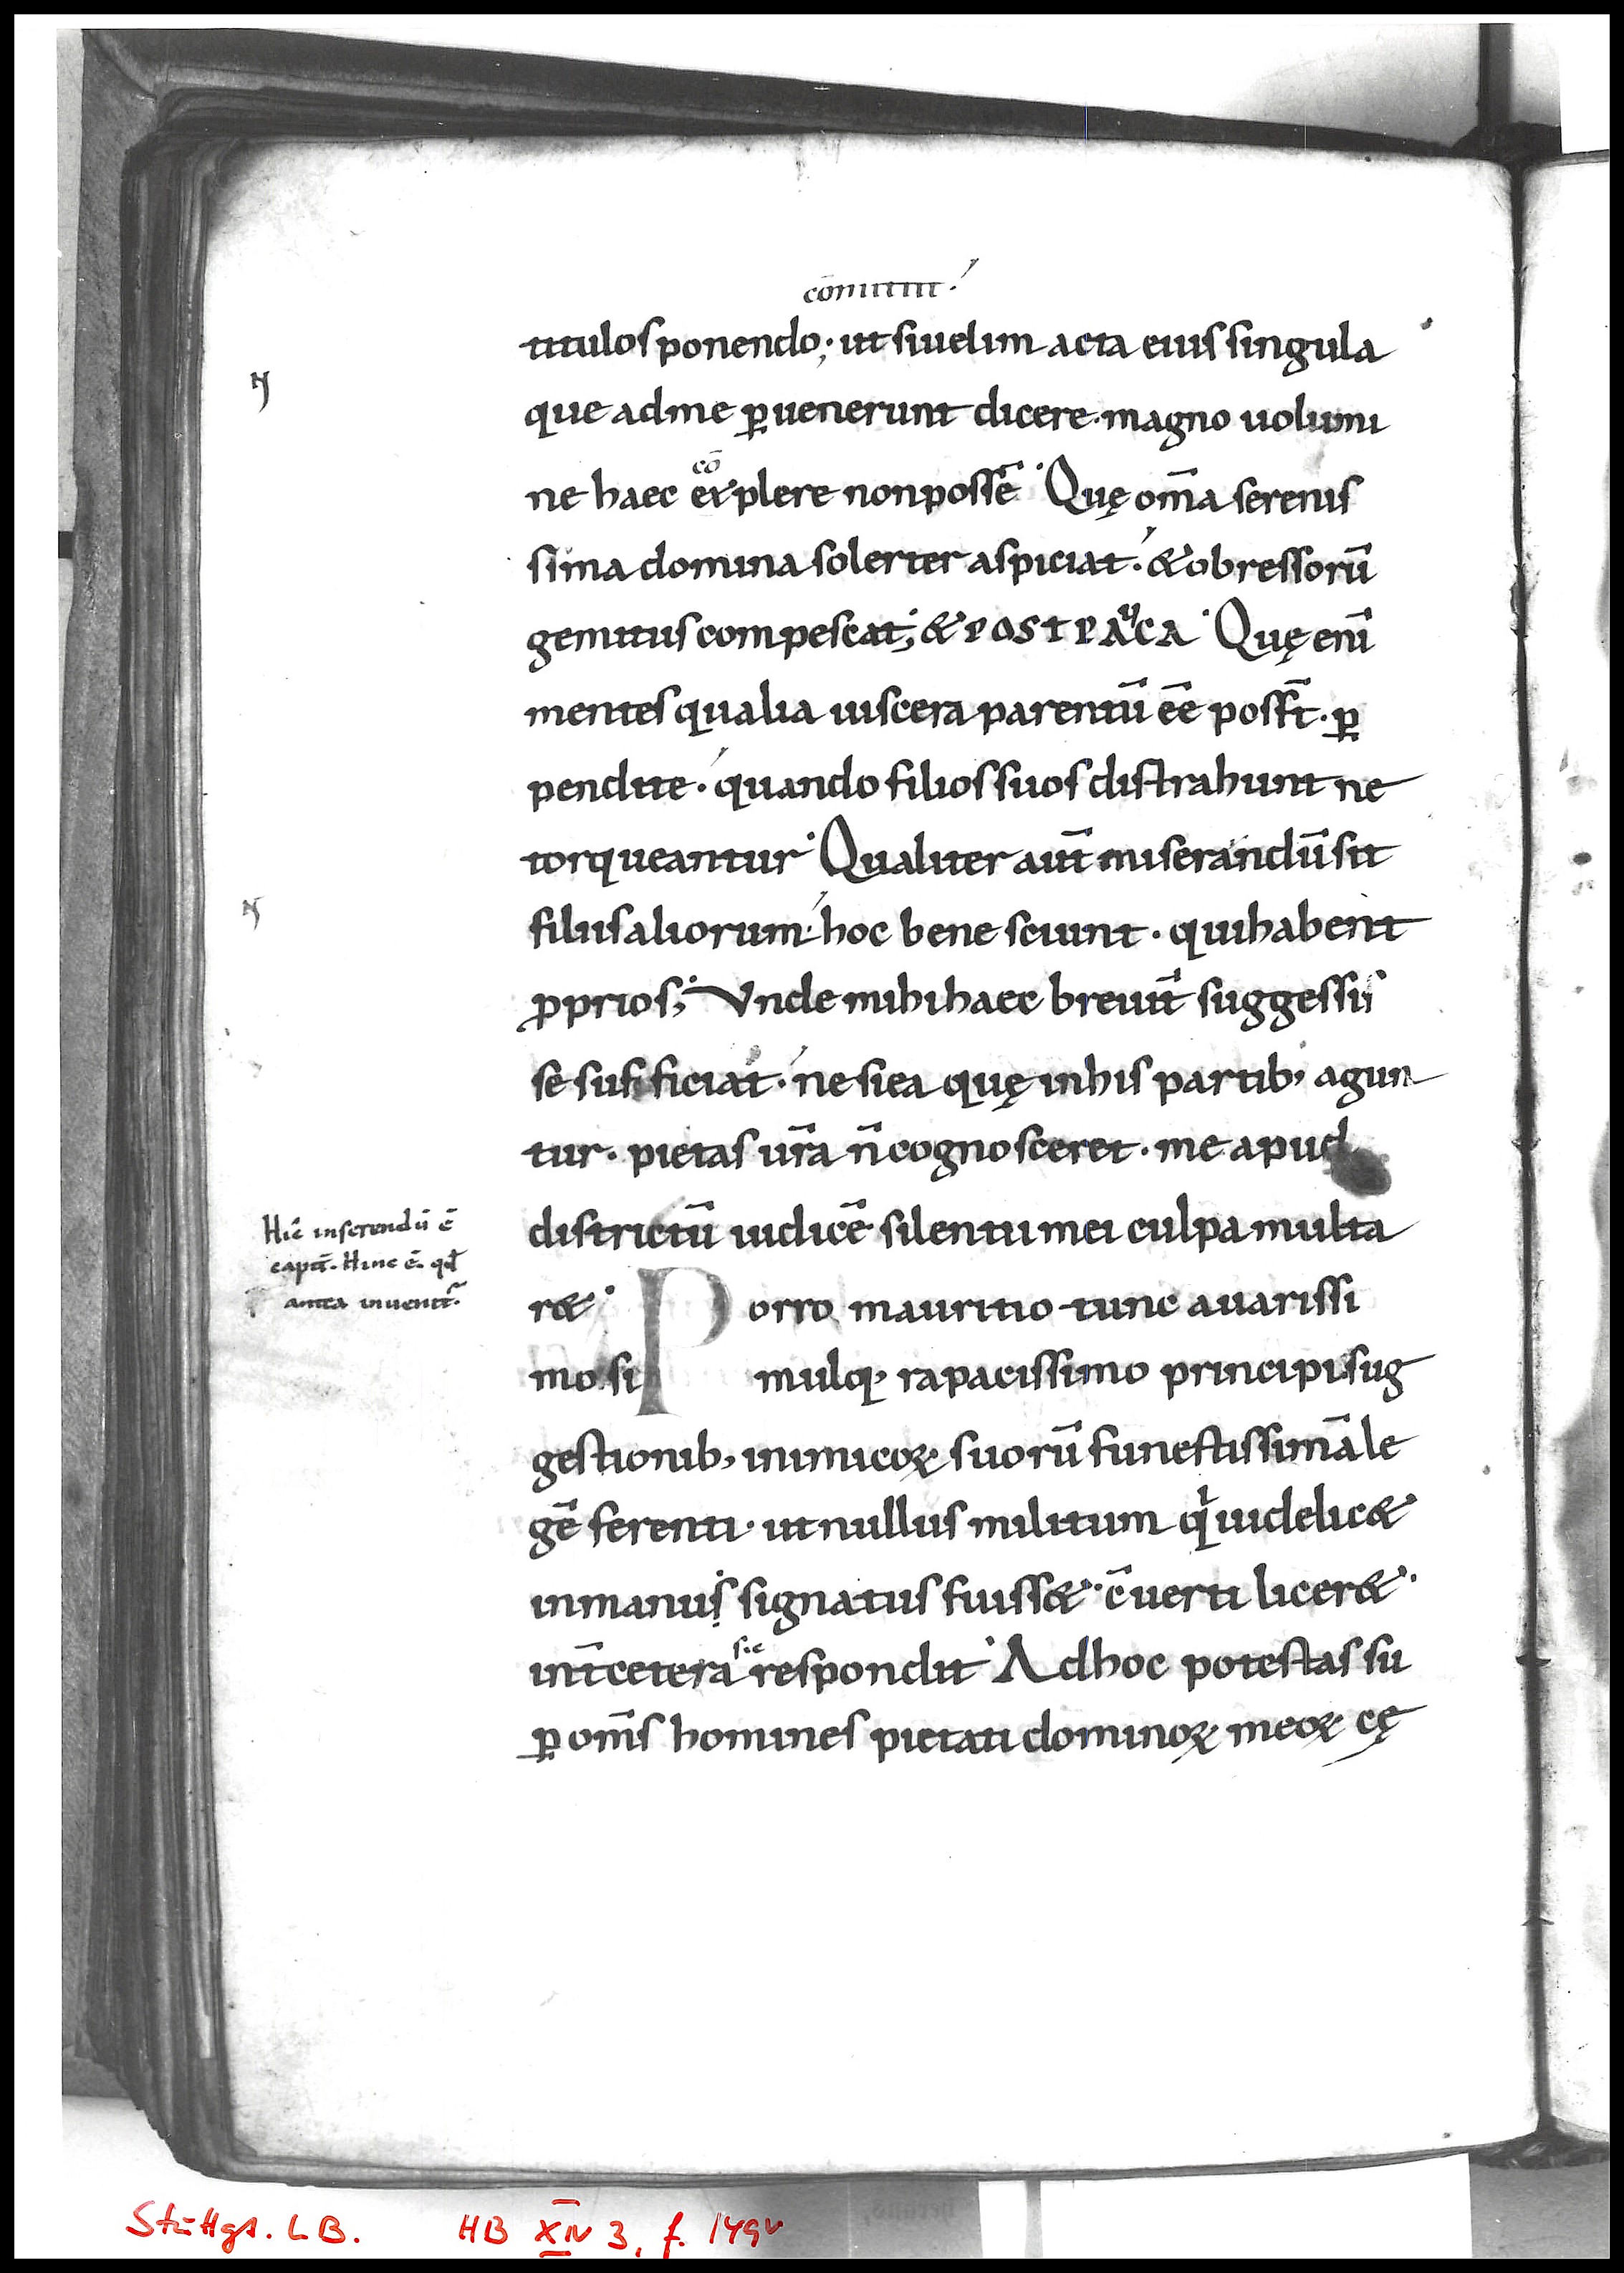 cōmittit.
titulos ponendo; ut si uelim acta eius singula
que ad me ꝑuenerunt dicere. magno uolumi
cō
ne haec explere non possē. Quę om̄a serenis
sima domina solerter aspiciat. & obpressorū
gemitus compescat; & POST PAUCA. Quę eni͞
mentes qualia uiscera parentū ēē possT̄. ꝑ
pendite. quando filios suos distrahunt ne
torqueantur. Qualiter aut̄ miserandū sit
filiis aliorum. hoc bene sciunt. qui habent
ꝓprios; Vnde mihi haec breuit̄ suggessis
se sufficiat. ne si ea quę in his partib; agun
tur. pietas ur̄a n̄ cognosceret. me apud
districtū iudicē silentii mei culpa multa
Hic̄ inserendū ē
capit̄. Hinc ē. qđ
antea inuenit̄.
r&. Porro mauritio tunc auarissi
mo simulq; rapacissimo principi sug
gestionib; inimicoꝝ suorū funestissimā le
gē ferenti. ut nullus militum qͥ uidelic&
in manus signatus fuiss&. c̄uerti licer&.
sic
int̄ cetera respondit. Ad hoc potestas su
ꝑ om̄s homines pietati dominoꝝ meoꝝ cę
Stuttgt. LB. HB XIV 3, f. 149v